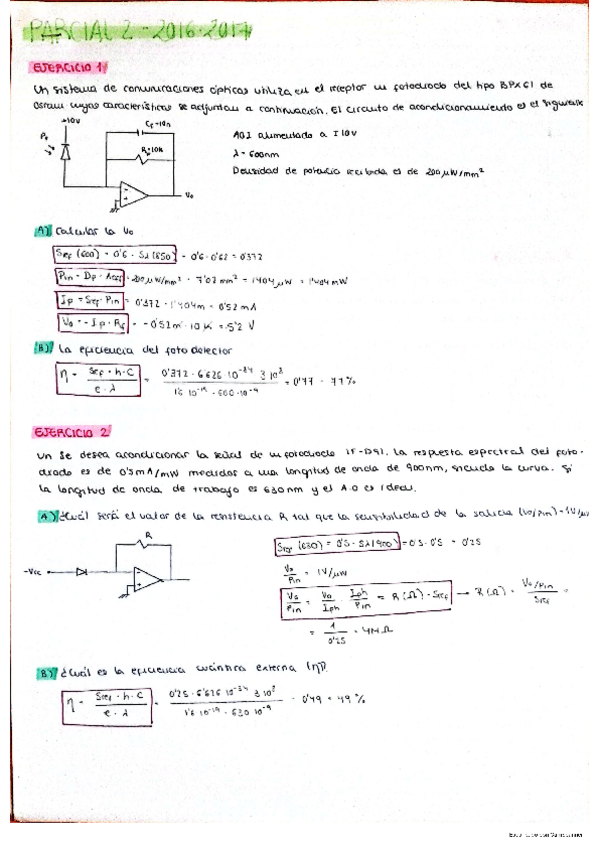 PARCIAL 2 - 2016-2017
EJERCICIO 1
Un sistema de comunicaciones ópticas utiliza en el receptor un fotodiodo del tipo BPX61 de
Osram cuyas características se adjuntan a continuación. El circuito de acondicionamiento es el siguiente
+10V
Cf=10n
Rf=10K
Vo
A01 alimentado a ±10V
λ = 600nm
Densidad de potencia recibida es de 200μW/mm²
A) Calcular la Vo
Sref (600) = 0'6 · Sλ(850) = 0'6 · 0'62 = 0'372
Pin = Dp · Aeff = 200μW/mm² · 7'02 mm² = 1404μW = 1'404mW
Ip = Sref · Pin = 0'372 · 1'404m = 0'52 mA
Vo = -Ip · Rf = -0'52m · 10K = -5'2 V
B) La eficiencia del foto detector
η = Sref · h · C / e · λ = 0'372 · 6'626·10⁻³⁴ 3·10⁸ / 1'6·10⁻¹⁹ · 600·10⁻⁹ = 0'77 · 77%
EJERCICIO 2
Un se desea acondicionar la señal de un fotodiodo IF-D91. La respuesta espectral del foto-
diodo es de 0'5mA/mW medidos a una longitud de onda de 900nm, siendo la curva. Si
la longitud de onda de trabajo es 630nm y el A.O es ideal.
A) ¿Cuál será el valor de la resistencia R tal que la sensibilidad de la salida (Vo/Pin) = 1V/μw
-Vcc
R
Sref (630) = 0'5 · Sλ(900) = 0'5 · 0'5 = 0'25
Vo / Pin = 1V/μW
Vo / Pin = Vo / Iph · Iph / Pin = R(Ω) · Sref → R(Ω) = Vo/Pin / Sref =
= 1 / 0'25 = 4MΩ
B) ¿Cuál es la eficiencia cuántica externa (η)?
η = Sref · h · C / e · λ = 0'25 · 6'626·10⁻³⁴ 3·10⁸ / 1'6·10⁻¹⁹ · 630·10⁻⁹ = 0'49 = 49%